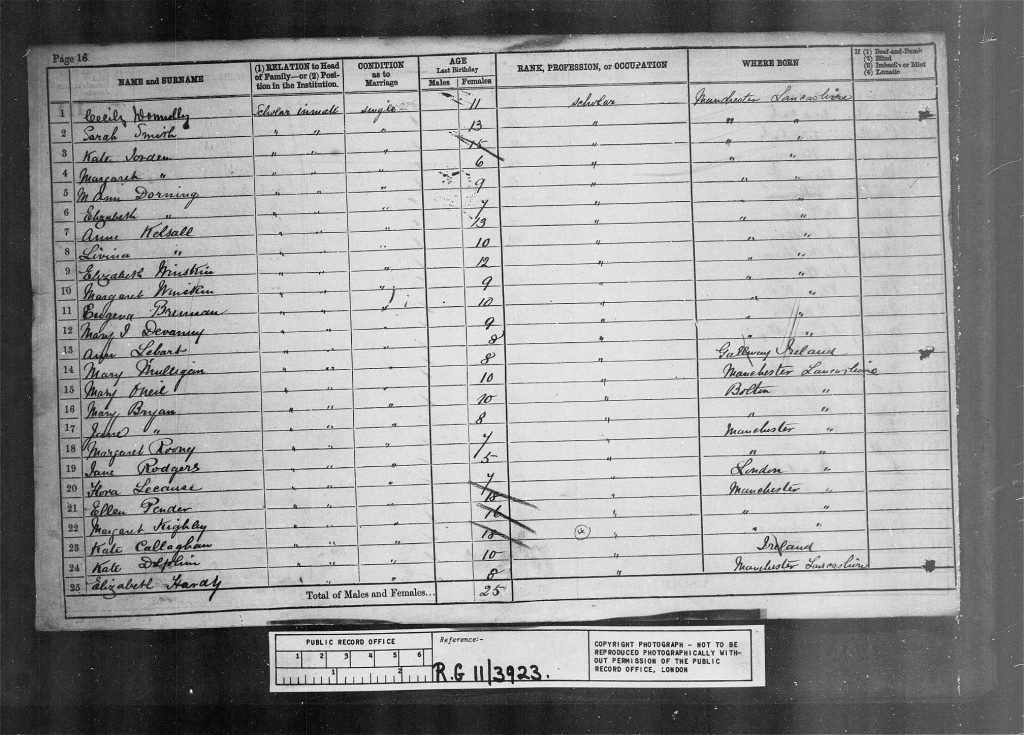 Page 16
NAME and SURNAME (1) RELATION to Head of Family—or (2) Position in the Institution. CONDITION as to Marriage AGE Last Birthday Males Females RANK, PROFESSION, or OCCUPATION WHERE BORN If (1) Deaf-and-Dumb (2) Blind (3) Imbecile or Idiot (4) Lunatic
1 Cecily Donnelly Scholar inmate single 11 scholar Manchester Lancashire
2 Sarah Smith " " " 13 " " "
3 Kate Jorden " " " 15 " " "
4 Margaret " " " " 6 "
5 M Ann Dorning " " " 9 " " "
6 Elizabeth " " " " 7 " " "
7 Anne Kelsall " " " 13 " " "
8 Livina " " " " 10 " " "
9 Elizabeth Winskin " " " 12 " " "
10 Margaret Winskin " " " 9 " " "
11 Eugena Brennan " " " 10 " " "
12 Mary J Devanny " " " 9 " " "
13 Ann Lebart " " " 8 " " "
14 Mary Mulligan " " " 8 " Gallway Ireland
15 Mary Oneil " " " 10 " Manchester Lancashire
16 Mary Bryan " " " 10 " Bolton "
17 " " " " 8 " " "
18 Margaret Roony " " " 7 " Manchester "
19 Jane Rodgers " " " 5 " " "
20 Flora " " " 7 " London "
21 Ellen Pender " " " 18 " Manchester "
22 Margaret Kighley " " " 16 " " "
23 Kate Callaghan " " " 18 " " "
24 Kate Dolphin " " " 10 " Ireland
25 Elizabeth Hardy " " " 8 " Manchester Lancashire
Total of Males and Females... 25
PUBLIC RECORD OFFICE
1 2 3 4 5 6
1 2
Reference:-
R.G 11/3923.
COPYRIGHT PHOTOGRAPH - NOT TO BE
REPRODUCED PHOTOGRAPHICALLY WITH-
OUT PERMISSION OF THE PUBLIC
RECORD OFFICE, LONDON